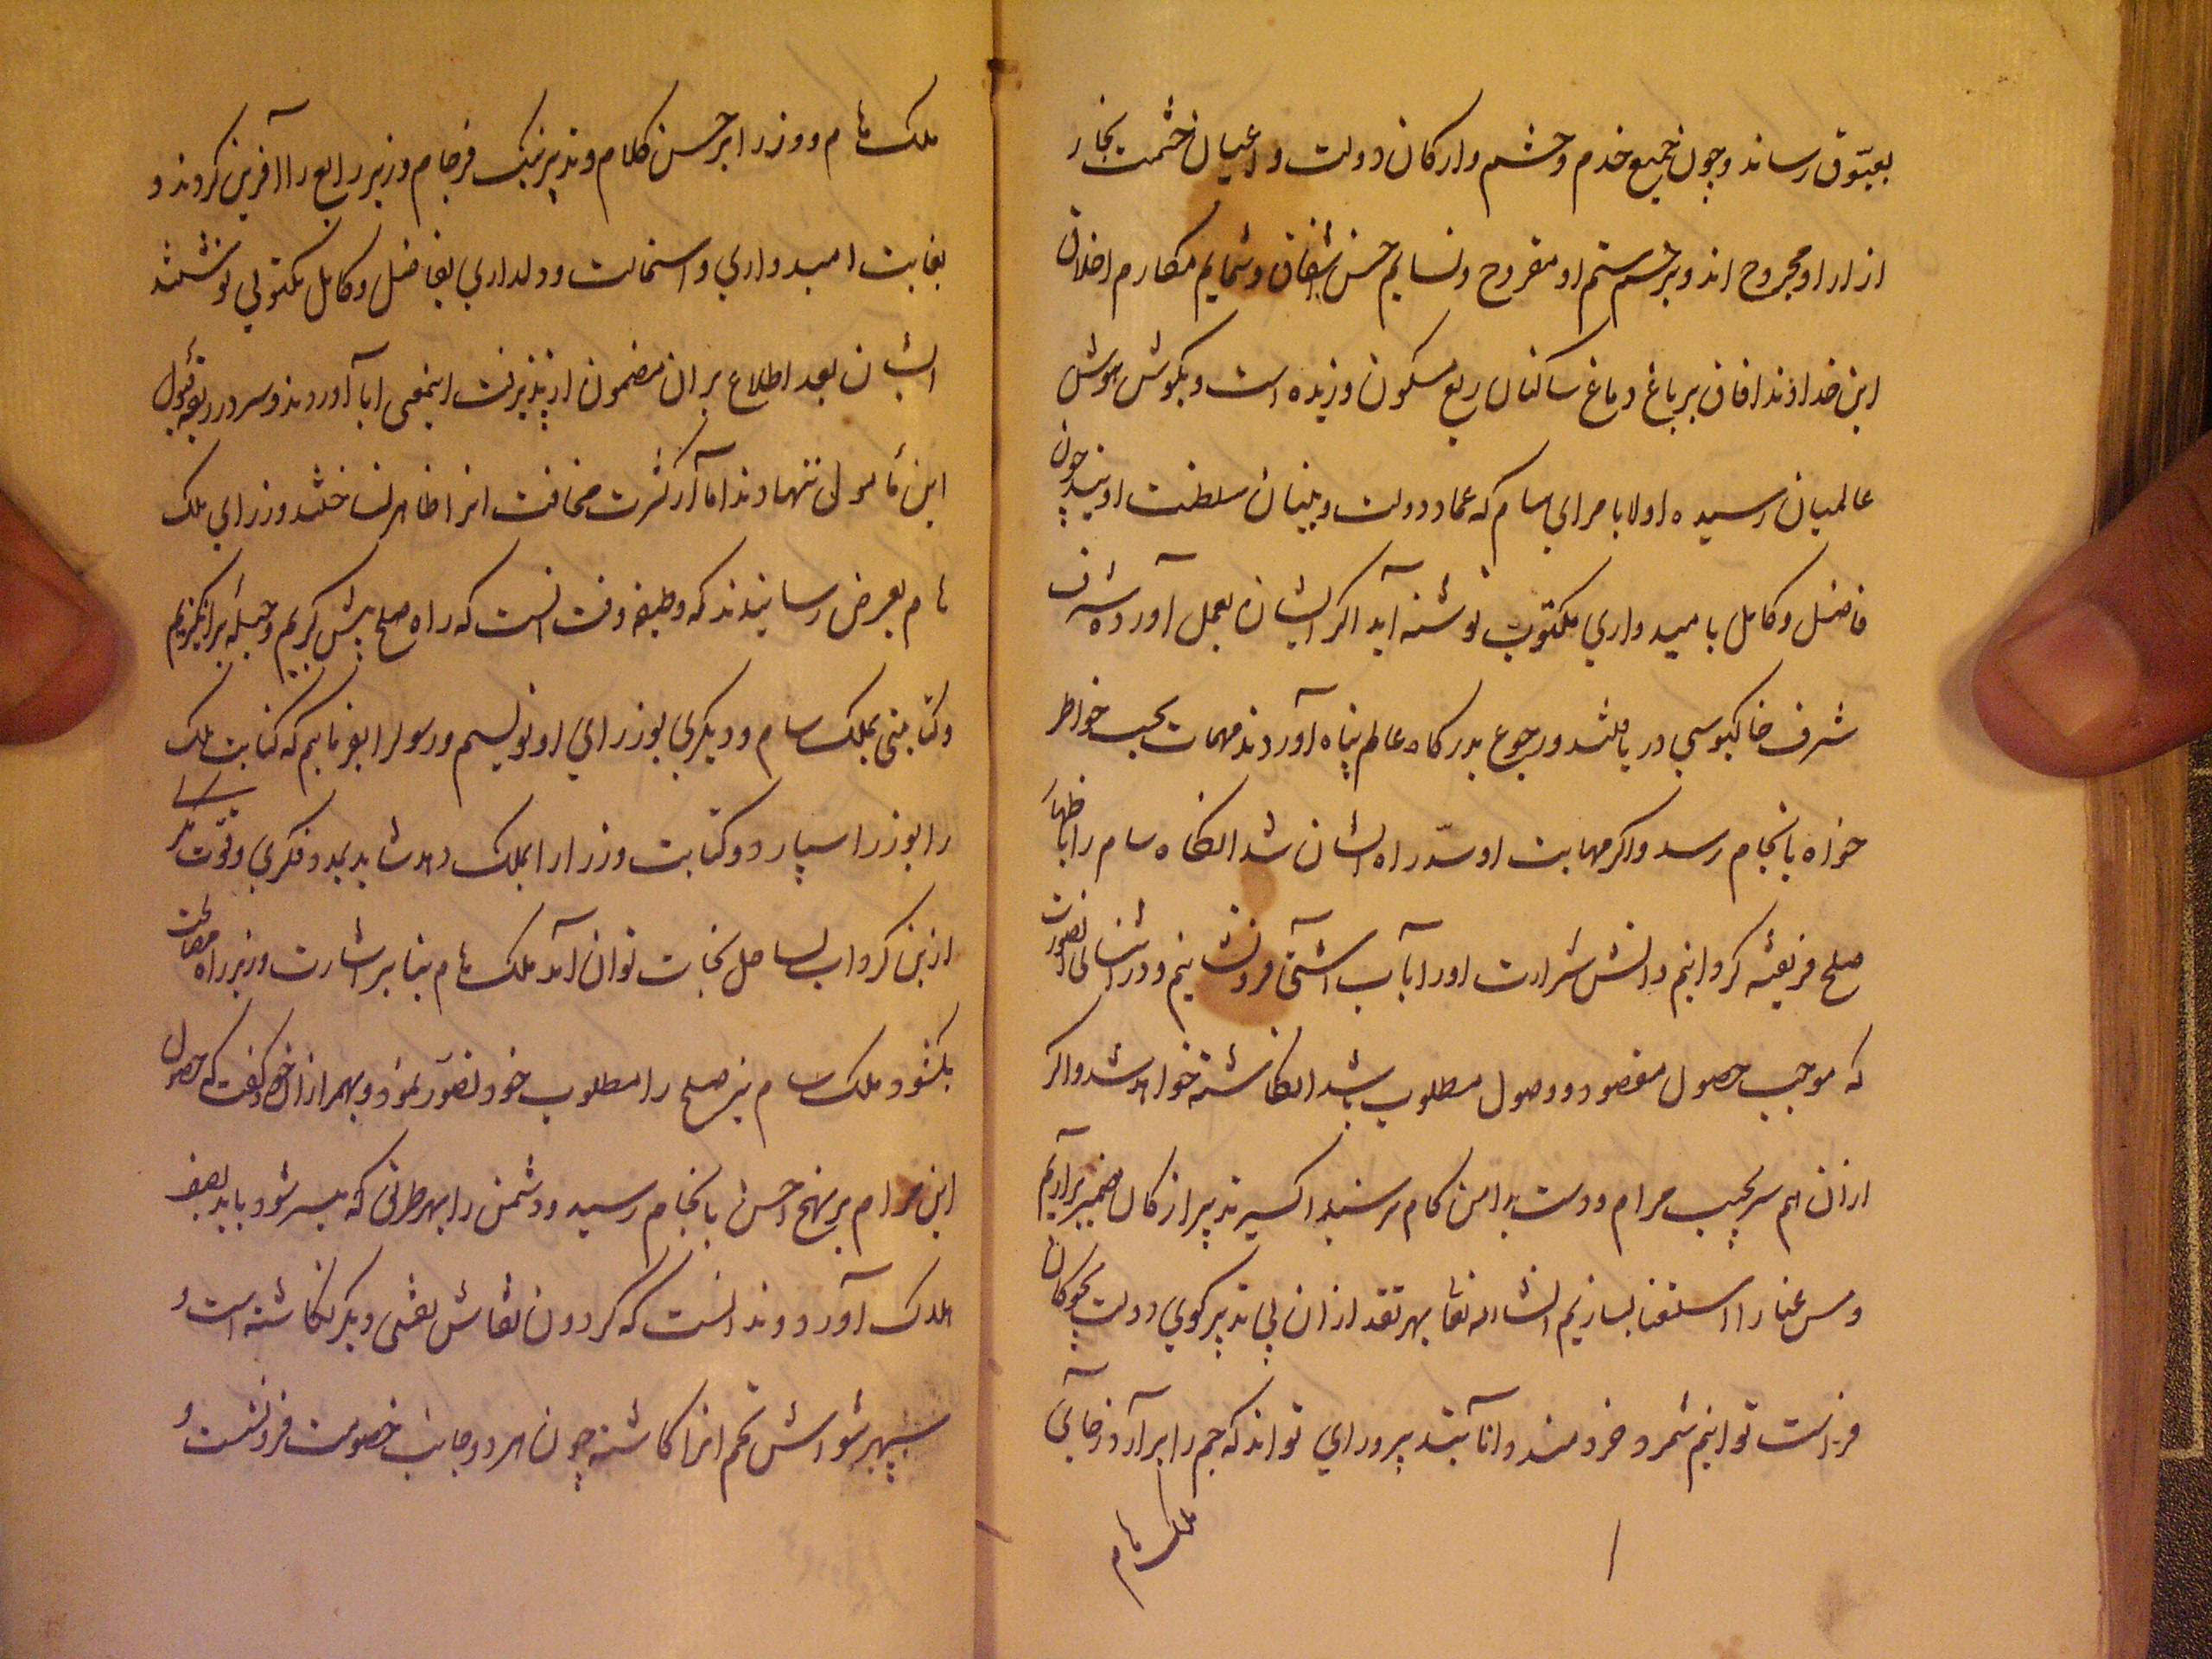 بعیّوق رساند و چون جمیع خدم و حشم و ارکان دولت و اعیان حشمت بخار
ازار او مجروح اند و بزخم ستم او مقروح و نسایم حسن اشفاق و شمایم مکارم اخلاق
این خداوند افاق بر باغ دماغ ساکنان ربع مسکون وزیده است و بکوش هوش
عالمیان رسیده اولا بامرای سام که عماد دولت و بنیان سلطنت اویند چون
فاضل و کامل بامیدواری مکتوب نوشته آید اکر ایشان بعمل آورده
شرف خاکبوسی دریافتند و رجوع بدرکاه عالم پناه آوردند مهمات بحسب خواطر
خواه بانجام رسد و اکر مهابت او سدّ راه ایشان شد انکاه سام را باظهار
صلح فریفته کردانیم و اتش شرارت او را بآب اشتی فرو نشانیم و در اثنای آن صورت
که موجب حصول مقصود و وصول مطلوب باشد انکاشته خواهد شد و اکر
ازان هم سر بجیب مرام و دست بدامن کام نرسید اکسیر تدبیر از کان ضمیر برآریم
و مس عنا را استغنا بسازیم انشاء الله تعالی بهر تقدیر ازان پی تدبیر کوی دولت بچوکان
فراست توانیم شمرد خردمند دانا بتدبیر و رای تواند که جم را برآرد ز جای
ملک هام
ملک هام و وزرا بر حسن کلام و تدبیر نیک فرجام وزیر رابع را آفرین کردند و
بغایت امیدواری و استمالت و دلداری بفاضل و کامل مکتوبی نوشتند
ایشان بعد اطلاع بر ان مضمون از پذیرفت اینمعنی ابا آوردند و سر در ربقه قبول
این مأمول ننهادند اما از کثرت مخافت انرا ظاهر نساختند وزرای ملک
هام بعرض رسانیدند که وظیفه وقت انست که راه صلح پیش کریم و حیله برانکیزیم
و کتابتی بملک سام و دیکری بوزرای او نویسیم و رسول را بفرمایم که کتابت ملک
را بوزرا سپارد و کتابت وزرا را بملک دهد شاید بمدد فکری و قوت تدبیر
ازین کرداب بساحل نجات توان آمد ملک هام بنابر اشارت وزیر راه مصالحت
بکشود ملک سام نیز صلح را مطلوب خود تصوّر نمود و بهمراز ان خود کفت که حصول
این مرام بر نهج احسن بانجام رسید و دشمن را بهر طرقی که میسر شود باید بصف
هلاک آورد و ندانست که کردون نقاش نقشی دیکر نکاشته است و
سپهر شورش تخم انرا کاشته چون هر دو جانب خصومت فرو نشست و